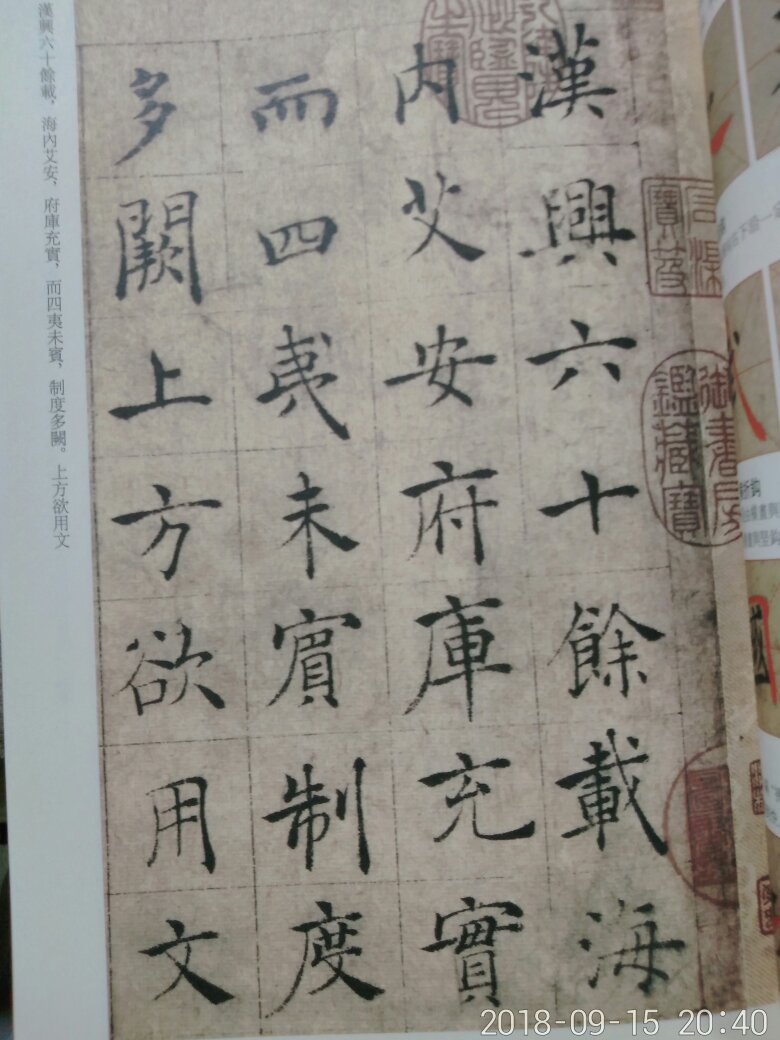 漢興六十餘載海
内艾安府庫充實
而四夷未賓制度
多闕上方欲用文
漢興六十餘載，海內艾安，府庫充實，而四夷未賓，制度多闕。上方欲用文
御書房鑑藏寶
石渠寶笈
2018-09-15 20:40